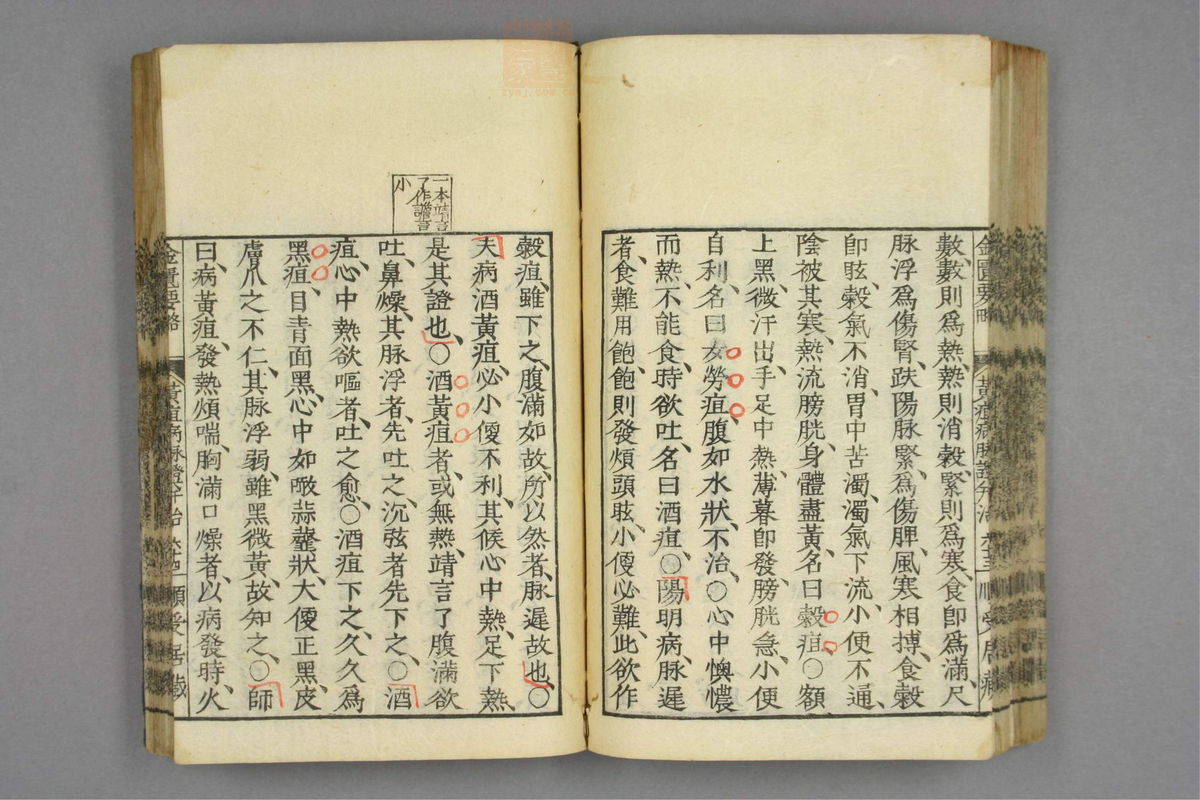 數數則爲熱熱則消穀緊則爲寒食卽爲滿尺
脉浮爲傷腎趺陽脉緊爲傷脾風寒相摶食穀
卽眩穀氣不消胃中苦濁濁氣下流小便不通
陰被其寒熱流膀胱身體盡黃名曰穀疸○額
上黑微汗出手足中熱薄暮卽發膀胱急小便
自利名曰女勞疸腹如水狀不治○心中懊憹
而熱不能食時欲吐名曰酒疸○陽明病脉遲
者食難用飽飽則發煩頭眩小便必難此欲作
穀疸雖下之腹滿如故所以然者脉遲故也○
夫病酒黃疸必小便不利其候心中熱足下熱
是其證也○酒黃疸者或無熱靖言了腹滿欲
吐鼻燥其脉浮者先吐之沉弦者先下之○酒
疸心中熱欲嘔者吐之愈○酒疸下之久久爲
黑疸目青面黑心中如噉蒜虀狀大便正黑皮
膚爪之不仁其脉浮弱雖黑微黃故知之○師
曰病黃疸發熱煩喘胸滿口燥者以病發時火
一本靖言
了作譫言
小
金匱要略
黃疸病脉證
順受居藏
金匱要略
黃疸病脉證并治
順受居藏